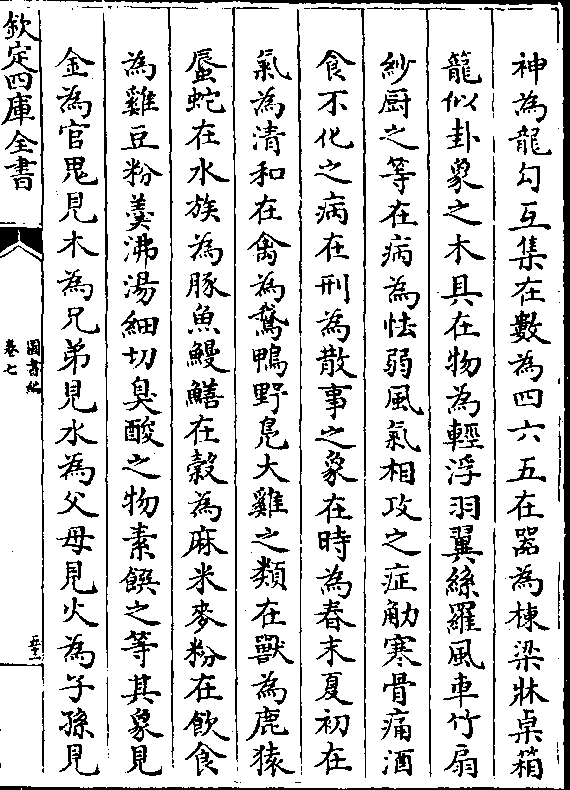 神為龍勾互集在數為四六五在器為棟梁牀桌箱
籠似卦象之木具在物為輕浮羽翼絲羅風車竹扇
紗厨之等在病為怯弱風氣相攻之症觔寒骨痛酒
食不化之病在刑為散事之象在時為春末夏初在
氣為清和在禽為鵞鴨野鳧大雞之類在獸為鹿猿
蜃蛇在水族為豚魚鰻鱔在穀為麻米麥粉在飲食
為雞豆粉羮沸湯細切臭酸之物素饌之等其象見
金為官鬼見木為兄弟見水為父母見火為子孫見
欽定四庫全書
圖書編
卷七